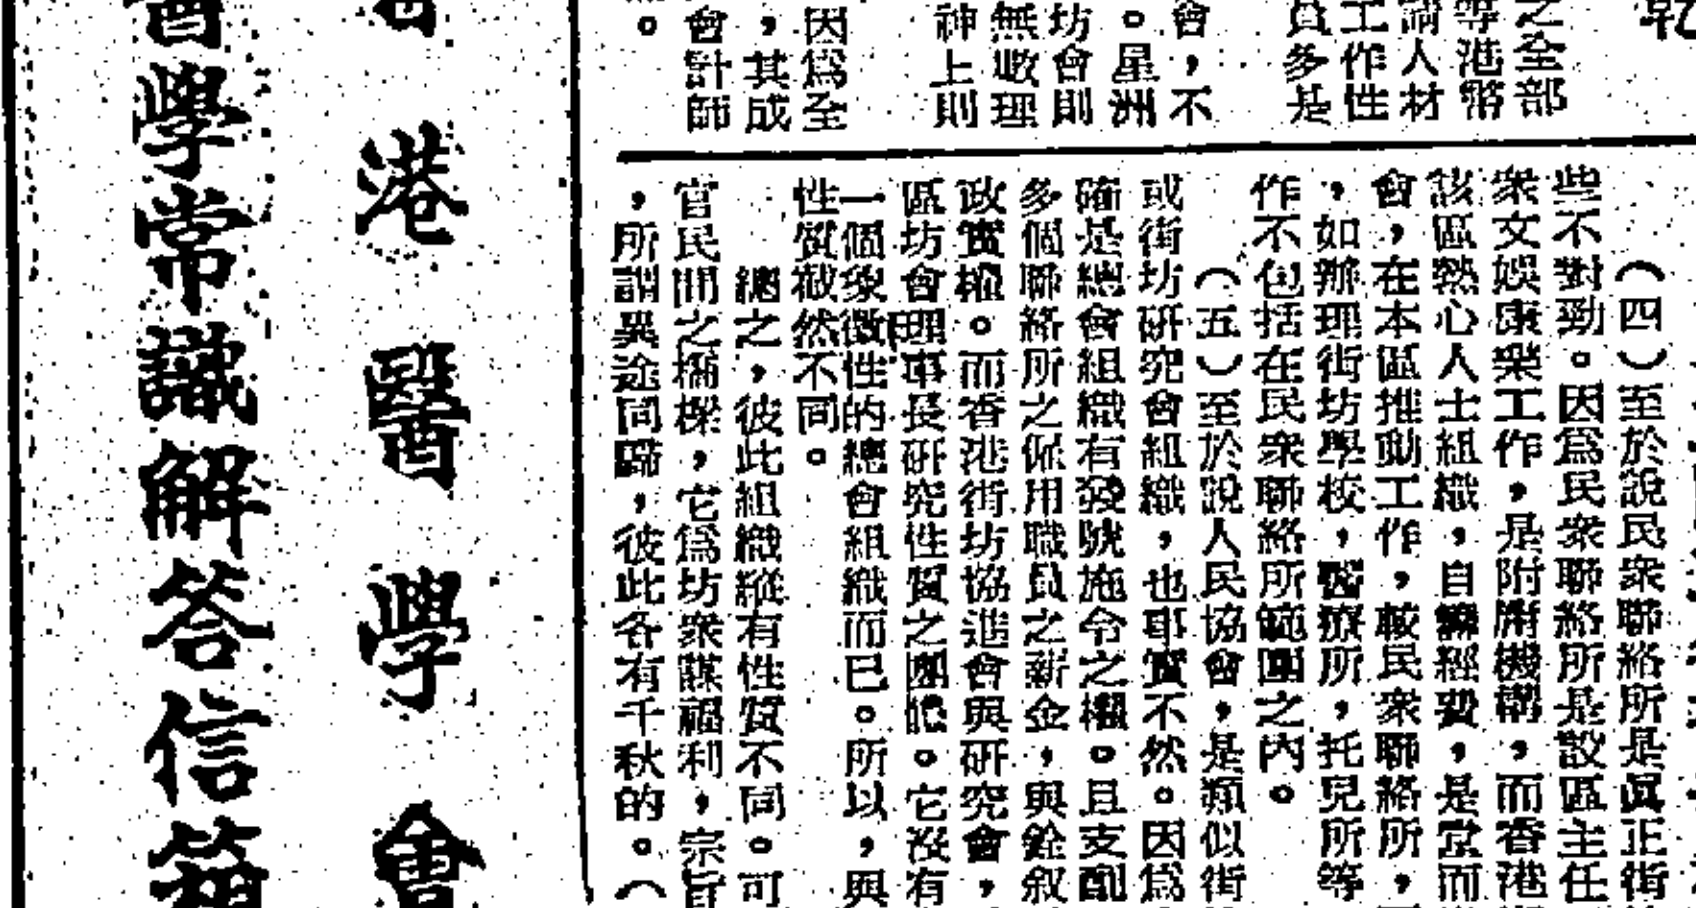 之全部
等港幣
請人材
工作性
員多是
會,不
。星洲
坊會則
無收理
神上則
因爲至
,其成
會計師
。
(四)至於說民衆聯絡所是眞正街
些不對勁。因爲民衆聯絡所是設區主任
衆文娛康樂工作,是附屬機構,而香港
該區熱心人士組織,自籌經費,是堂而
會,在本區推動工作,較民衆聯絡所,
,如辦理街坊學校,醫療所,托兒所等
作不包括在民衆聯絡所範圍之內。
(五)至於說人民協會,是類似街
或街坊研究會組織,也事實不然。因爲
確是總會組織有發號施令之權。且支配
多個聯絡所之僱用職員之薪金,與銓叙
政實權。而香港街坊協進會與研究會,
區坊會理事長研究性質之團體。它沒有
一個象徵性的總會組織而已。所以,與
性質截然不同。
總之,彼此組織縱有性質不同。可
官民間之橋樑,它爲坊衆謀福利,宗旨
,所謂異途同歸,彼此各有千秋的。(
港醫學會
醫學常識解答信箱